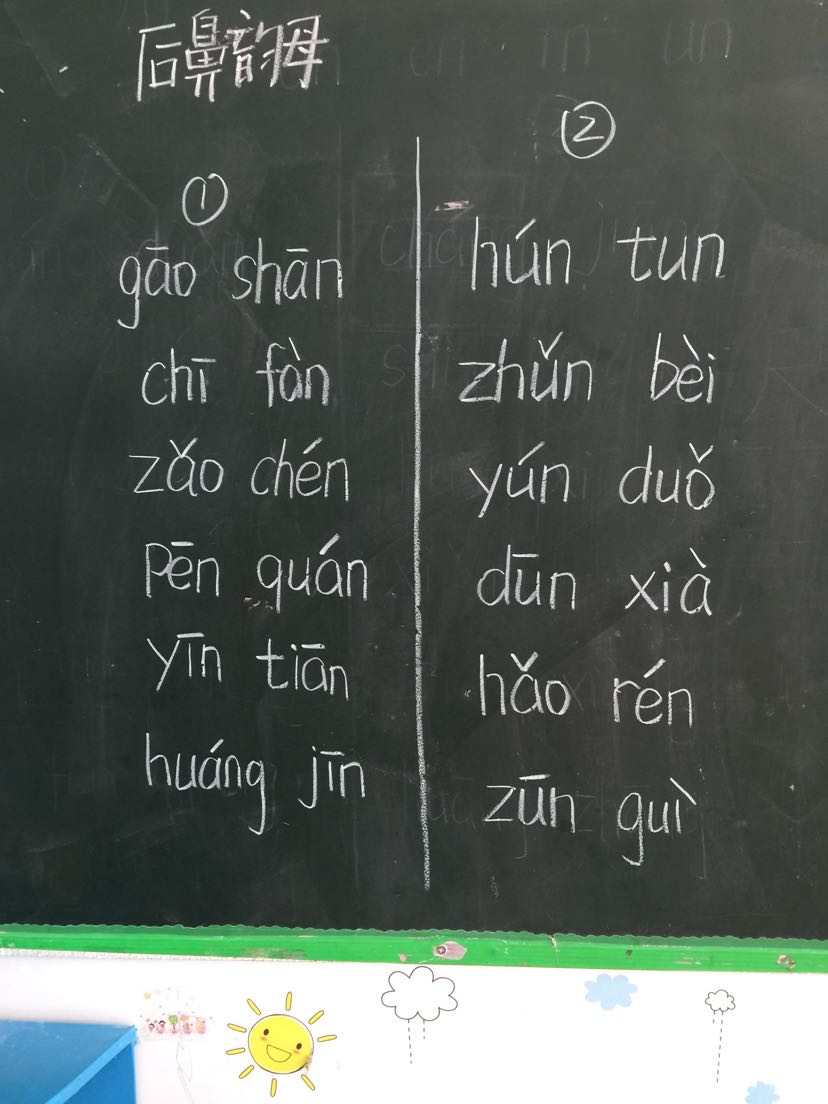 后鼻韵母
①
gāo shān
chī fàn
zǎo chén
pēn quán
yīn tiān
huáng jīn
②
hún tun
zhǔn bèi
yún duǒ
dūn xià
hǎo rén
zūn guì